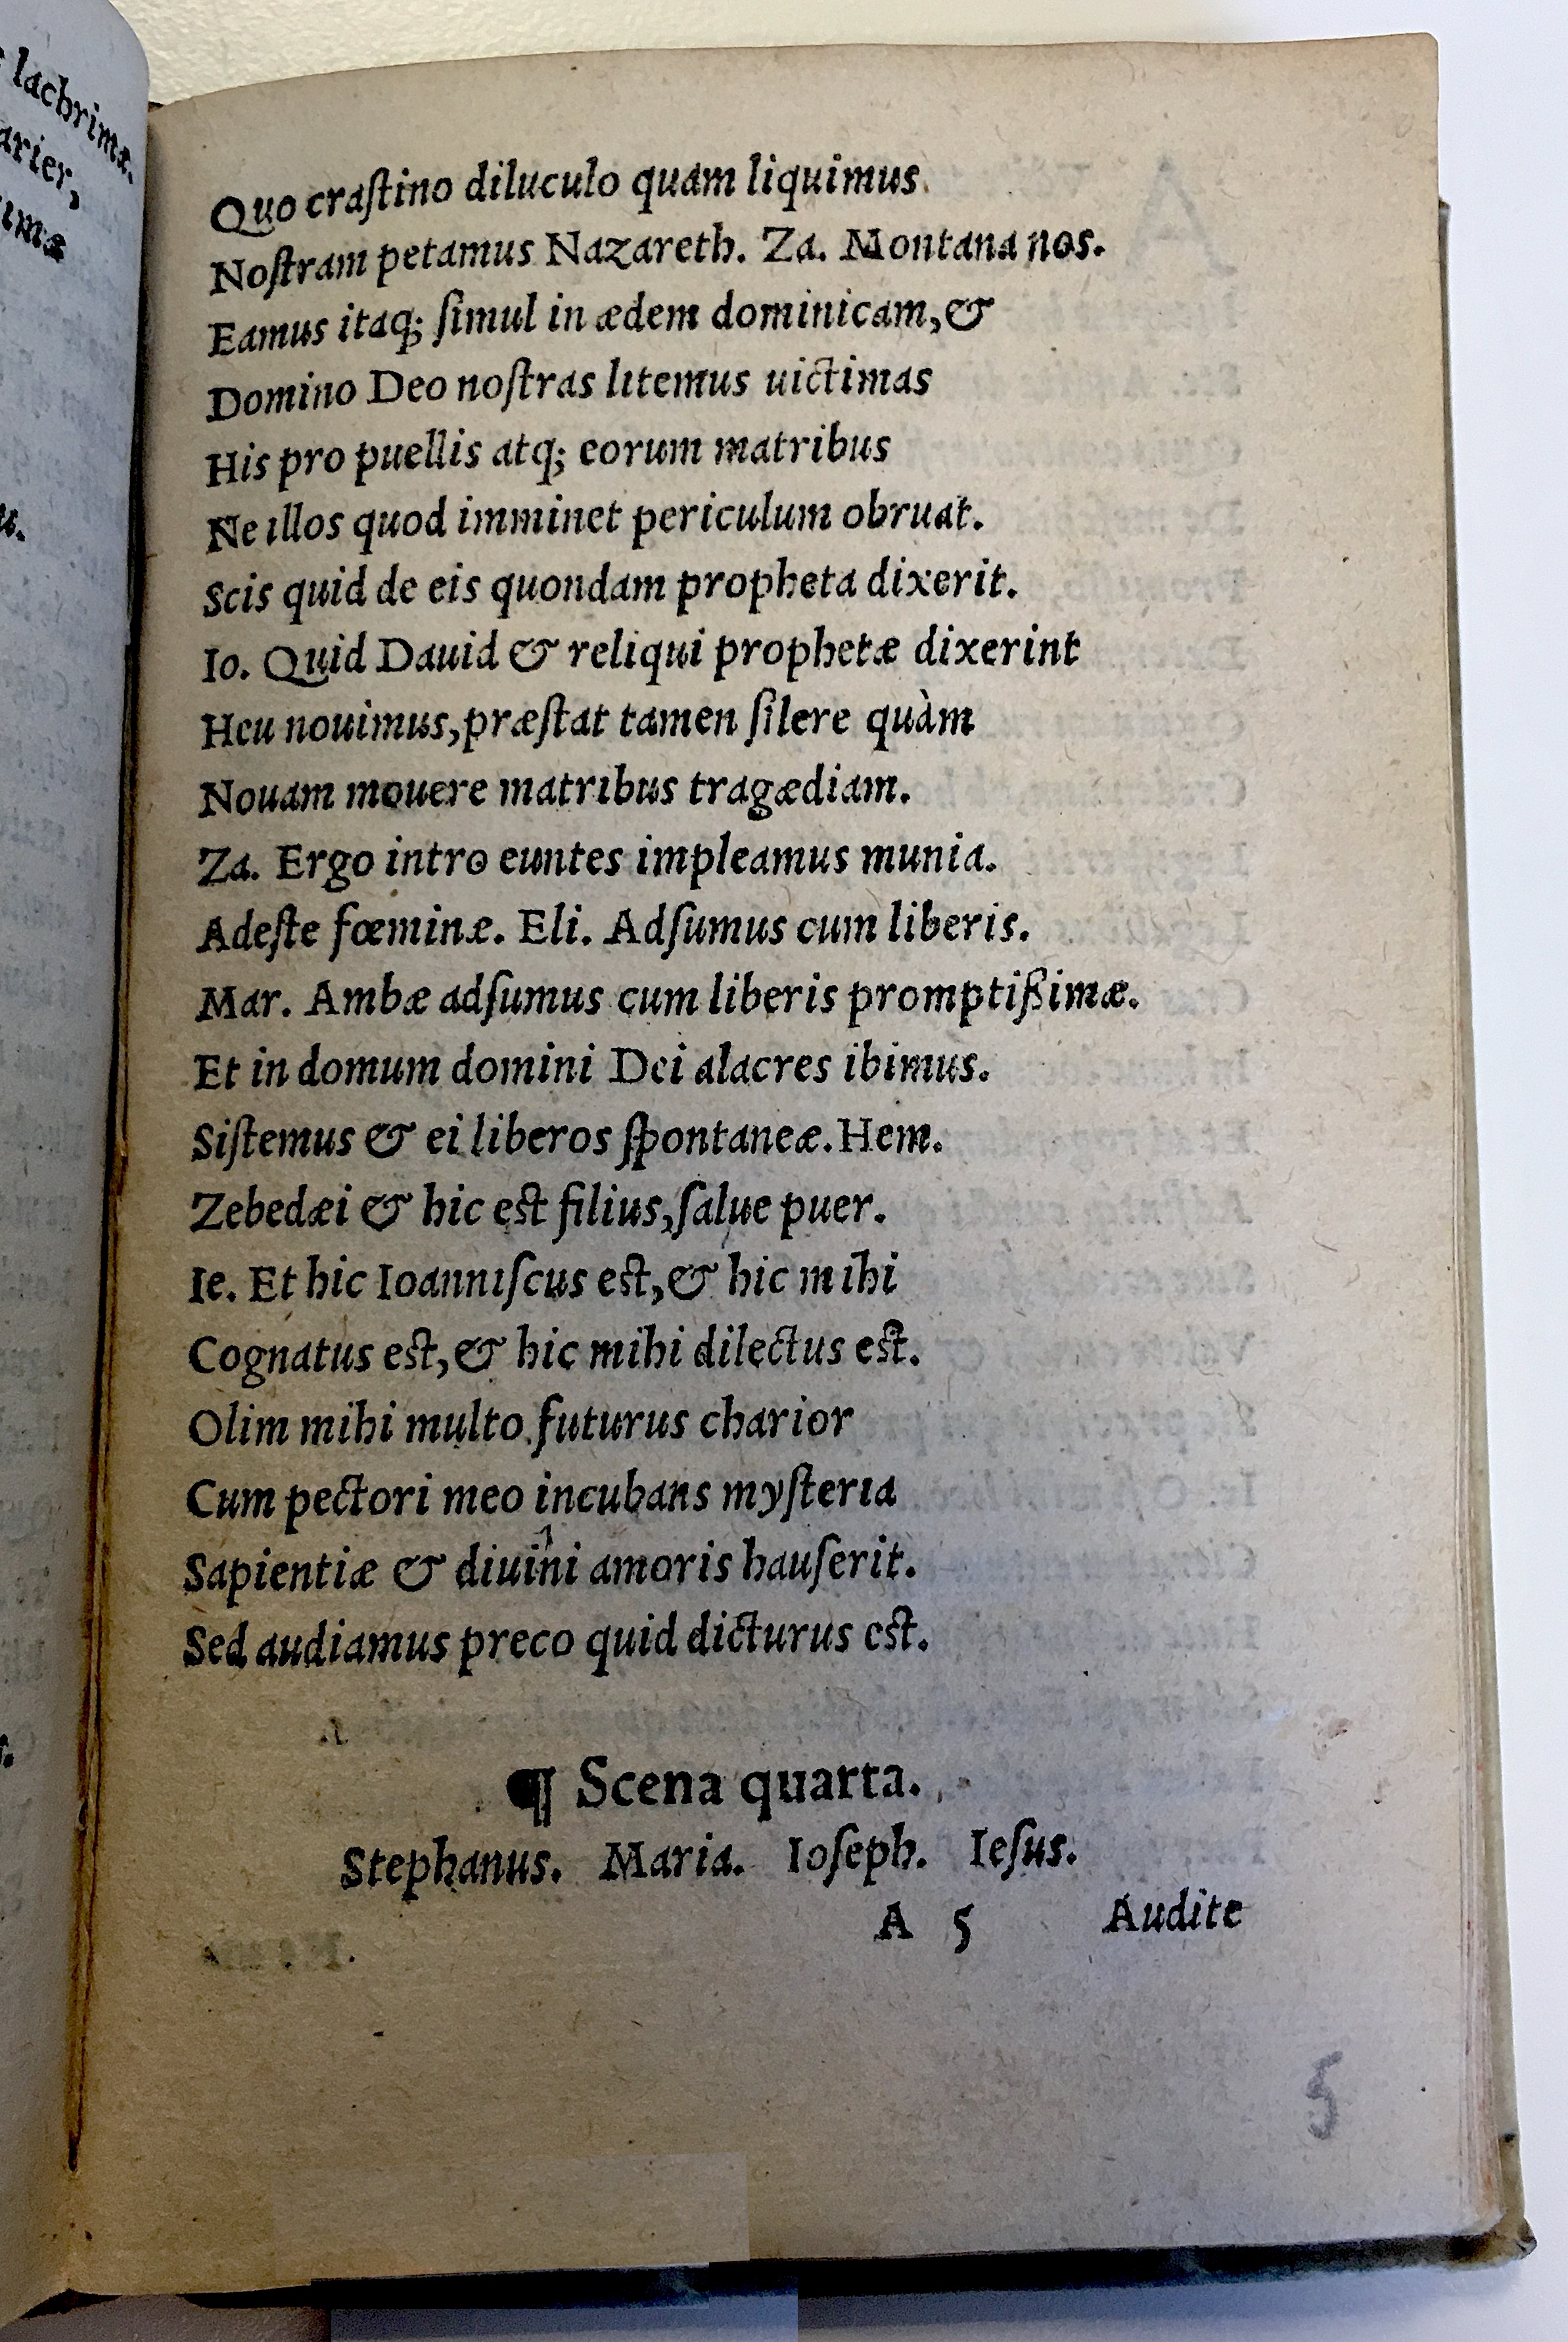 lachrimæ.
arier,
Quo craſtino diluculo quam liquimus
Noſtram petamus Nazareth. Za. Montana nos.
Eamus itaq; ſimul in ædem dominicam,&
Domino Deo noſtras litemus uictimas
His pro puellis atq; eorum matribus
Ne illos quod imminet periculum obruat.
Scis quid de eis quondam propheta dixerit.
Io. Quid Dauid & reliqui prophetæ dixerint
Heu nouimus,præſtat tamen ſilere quàm
Nouam mouere matribus tragædiam.
Za. Ergo intro euntes impleamus munia.
Adeſte fœminæ. Eli. Adſumus cum liberis.
Mar. Ambæ adſumus cum liberis promptißimæ.
Et in domum domini Dei alacres ibimus.
Siſtemus & ei liberos ſpontaneæ. Hem.
Zebedæi & hic est filius,ſalue puer.
Ie. Et hic Ioanniſcus est,& hic mihi
Cognatus est,& hic mihi dilectus est.
Olim mihi multo futurus charior
Cum pectori meo incubans myſteria
Sapientiæ & diuini amoris hauſerit.
Sed audiamus preco quid dicturus est.
¶ Scena quarta.
Stephanus. Maria. Ioſeph. Ieſus.
A 5 Audite
5